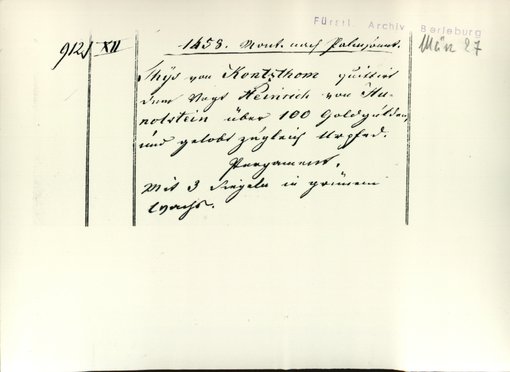 Fürstl. Archiv Berleburg
912 XII
1458. Mont. nach Palmsonnt.
März 27
Thys von Kontzthom quittirt
dem Vogt Heinrich von Hu-
nolstein über 100 Goldgulden
und gelobt zugleich Urpfed.
Pergament.
Mit 3 Siegeln in grünem
Wachs.